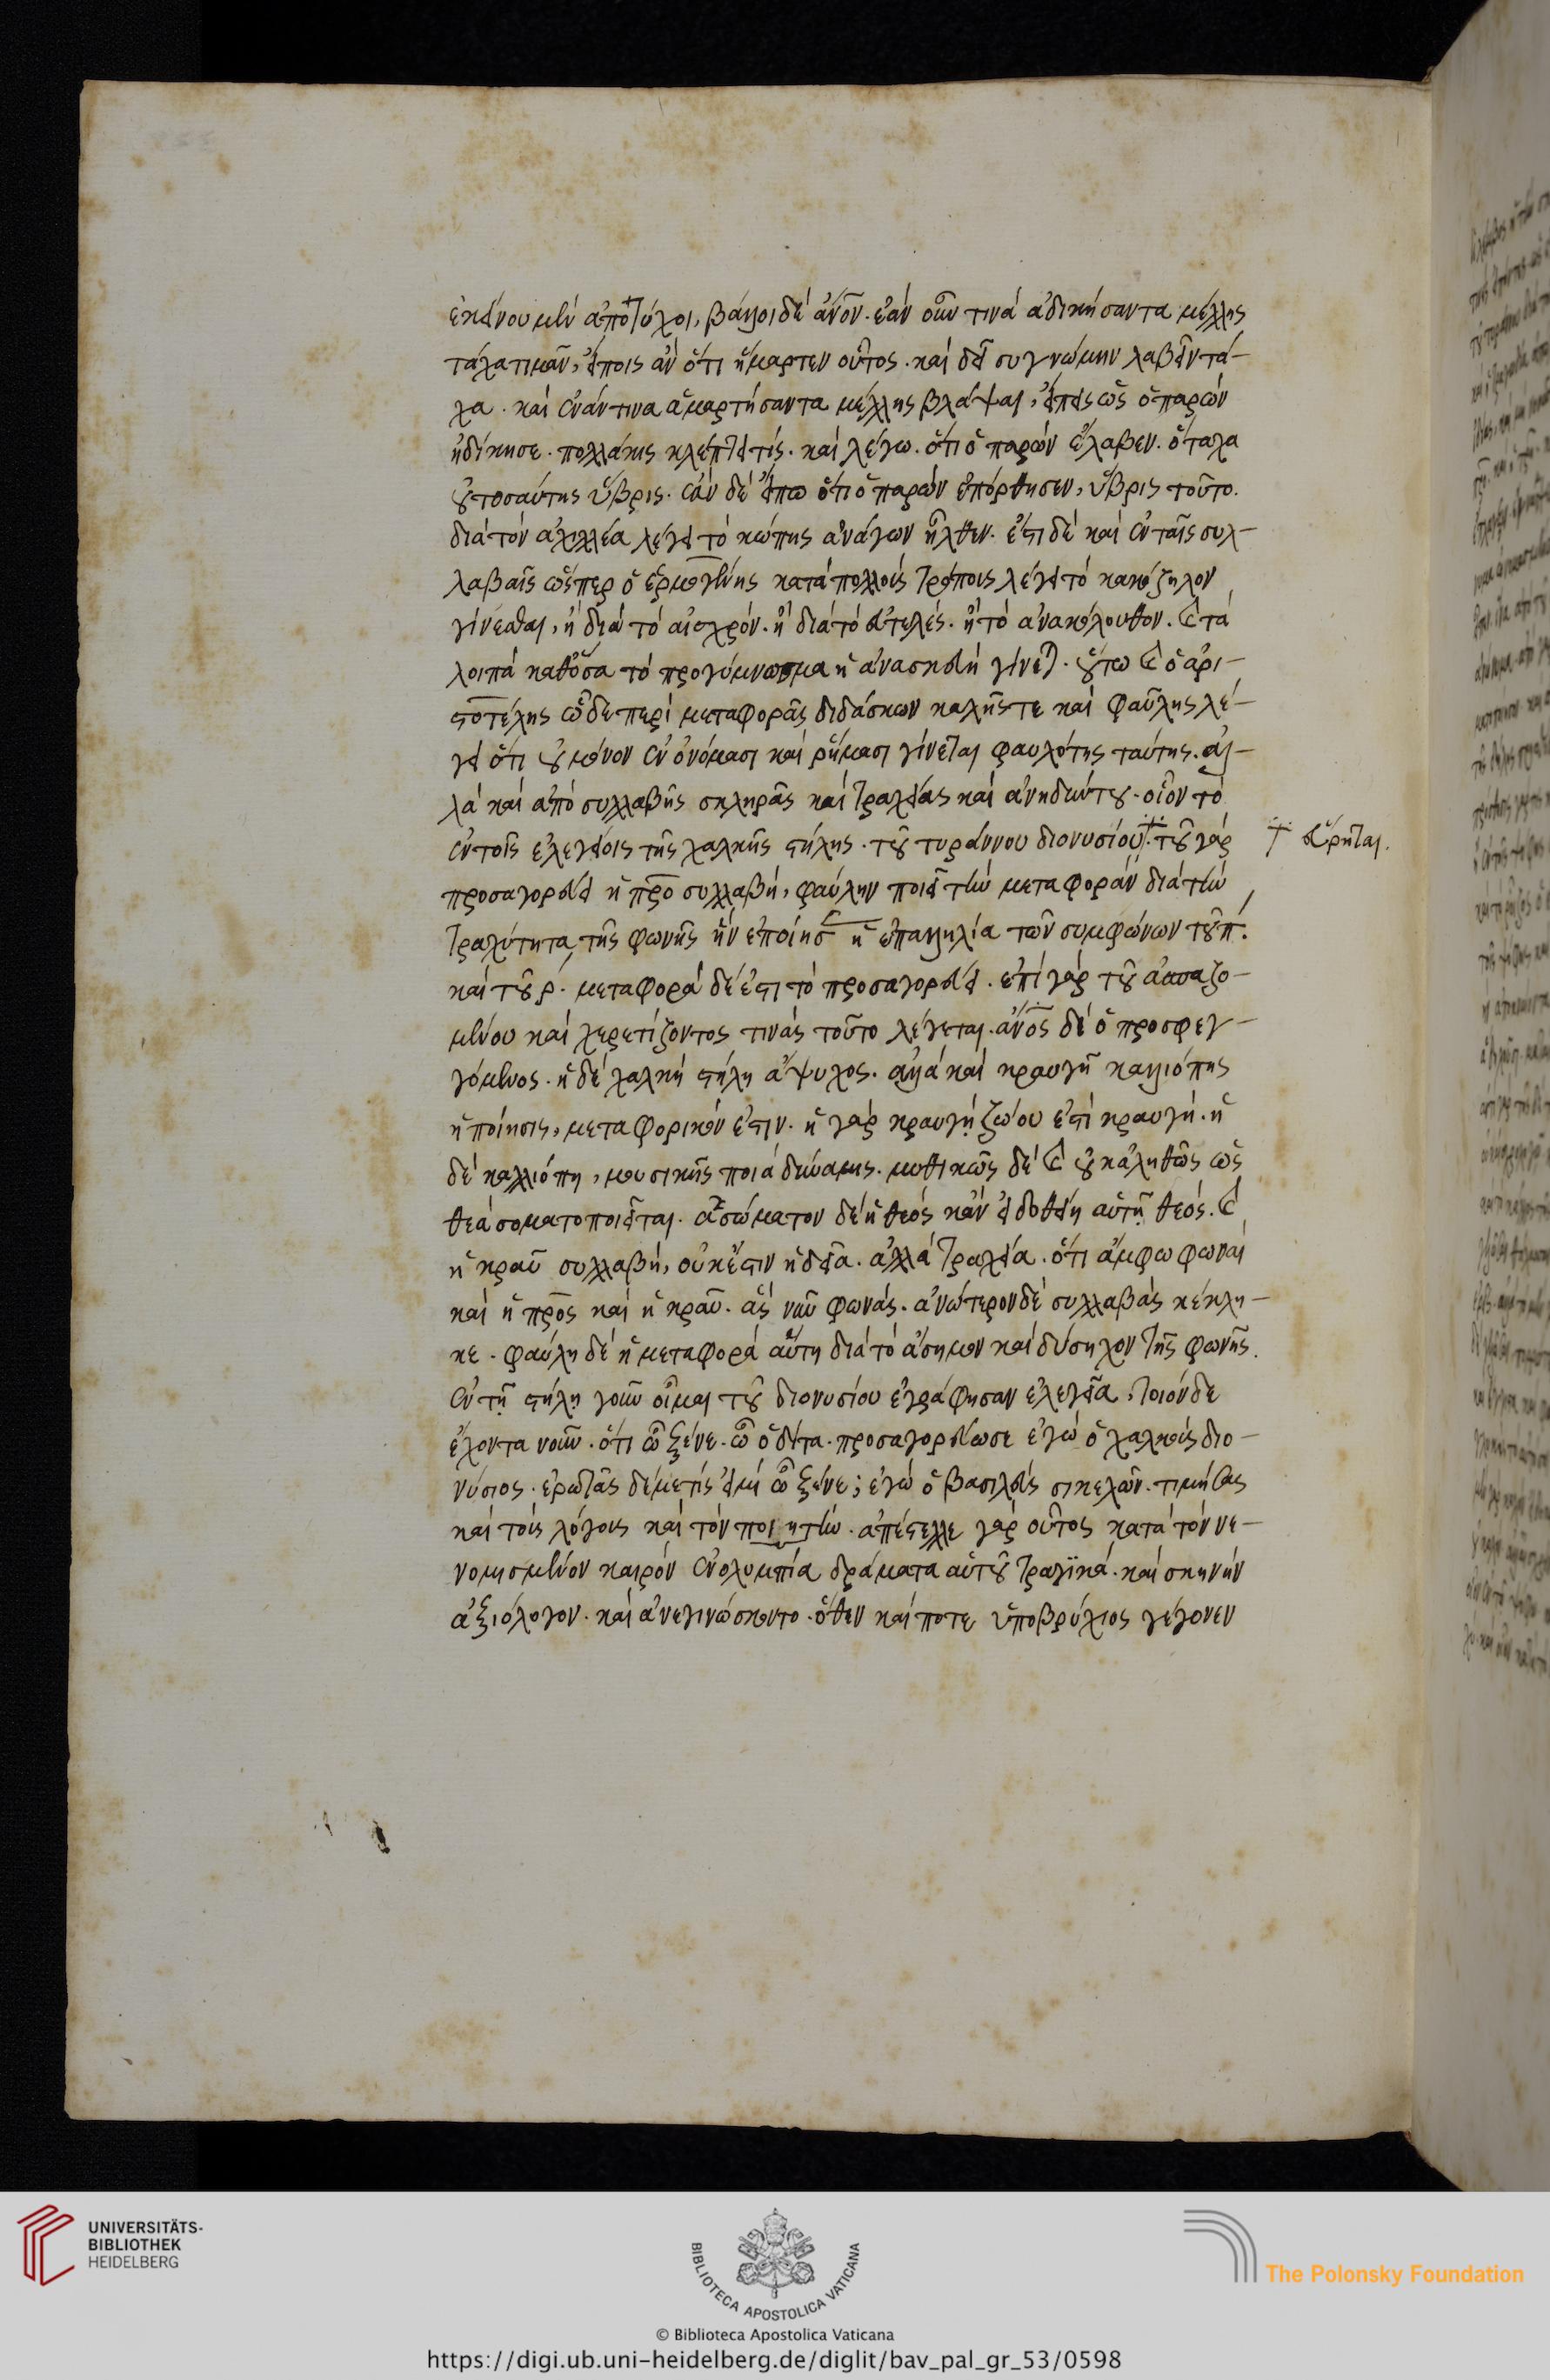 ἐκείνου μὲν ἀποτύχοι, βάλλοι δὲ ἄνον. ἐὰν οὖν τινὰ ἀδικήσαντα μέλλης
τάχα τιμᾶν, εἴποις ἂν ὅτι ἥμαρτεν οὗτος. καὶ δεῖ συγνώμην λαβεῖν τά-
χα. καὶ ἐὰν τινα ἁμαρτήσαντα μέλλης βλάψαι, εἴπεις ὡς ὁ παρὼν
ἠδίκησε. πολλάκις κλέπτει τίς. καὶ λέγω. ὅτι ὁ παρὼν ἔλαβεν.
οὐ τοσαύτης ὕβρις. ἐὰν δὲ εἴπω ὅτι ὁ παρὼν ἐπόρθησεν, ὕβρις τοῦτο.
διὰ τὸν ἀχιλλέα λέγει τὸ κώπης ἀνάγων ἦλθεν. ἔτι δὲ καὶ ἐν ταῖς συλ-
λαβαῖς ὥσπερ ὁ ἑρμογένης κατὰ πολλοὺς τρόπους λέγει τὸ κακόζηλον
γίνεσθαι, ἢ διὰ τὸ αἰσχρόν. ἢ διὰ τὸ εὐτελές. ἢ τὸ ἀνακόλουθον. καὶ τὰ
λοιπὰ καθ' ὅσα τὸ προγύμνασμα ἡ ἀνασκευὴ γίνεται. οὕτω καὶ ὁ ἀρι-
στοτέλης ὧδε περὶ μεταφορᾶς διδάσκων καλῆς τε καὶ φαύλης λέ-
γει ὅτι οὐ μόνον ἐν ὀνόμασι καὶ ῥήμασι γίνεται φαυλότης ταύτης. ἀλ-
λὰ καὶ ἀπὸ συλλαβῆς σκληρᾶς καὶ τραχείας καὶ ἀνηδύντου. οἷον τὸ
ἐν τοῖς ἐλεγείοις τῆς χαλκῆς στήλης. τοῦ τυράννου διονυσίου. τοῦ γὰρ ⸓ εὕρηται.
προσαγορεύει ἡ προ συλλαβή, φαύλην ποιεῖ τὴν μεταφορὰν διὰ τὴν
τραχύτητα τῆς φωνῆς ἣν ἐποίησεν ἡ ἐπαλληλία τῶν συμφώνων τοῦ π.
καὶ τοῦ ρ. μεταφορὰ δέ ἐστι τὸ προσαγορεύει. ἐπὶ γὰρ τοῦ ἀσπαζο-
μένου καὶ χερετίζοντος τινὰς τοῦτο λέγεται. ἄνος δὲ ὁ προσφεγ-
γόμενος. ἡ δὲ χαλκὴ στήλη ἄψυχος. ἀλλὰ καὶ κραυγὴ καλλιόπης
ἡ ποίησις, μεταφορικόν ἐστιν. ἡ γὰρ κραυγὴ ζώου ἐστὶ κραυγή. ἡ
δὲ καλλιόπη, μουσικῆς ποιὰ δύναμις. μυθικῶς δὲ καὶ οὐκ ἀληθῶς ὡς
θεὰ σοματοποιεῖται. ἀσώματον δὲ ἡ θεὸς κἂν εἰ δοθείη αὐτὴ θεός. καὶ
ἡ κραυ συλλαβή, οὐκ ἔστιν ἡδεῖα. ἀλλὰ τραχεῖα. ὅτι ἄμφω φωναὶ
καὶ ἡ προς καὶ ἡ κραυ. ἃς νῦν φωνάς. ἀνώτερον δὲ συλλαβὰς κέκλη-
κε. φαύλη δὲ ἡ μεταφορὰ αὕτη διὰ τὸ ἄσημον καὶ δύσηχον τῆς φωνῆς.
ἐν τῇ στήλῃ γοῦν οἶμαι τοῦ διονυσίου ἐγράφησαν ἐλεγεῖα, τοιόνδε
ἔχοντα νοῦν. ὅτι ὦ ξένε. ὦ ὁδῖτα. προσαγορεύω σε ἐγὼ ὁ χαλκοῦς διο-
νύσιος. ἐρωτᾶς δέ με τίς εἰμὶ ὦ ξένε; ἐγὼ ὁ βασιλεὺς σικελῶν. τιμήσας
καὶ τοὺς λόγους καὶ τὸν ποιητὴν. ἀπέστελλε γὰρ οὗτος κατὰ τὸν νε-
νομισμένον καιρὸν ἐν ὀλυμπία δράματα αὐτοῦ τραγϊκά. καὶ σκηνὴν
ἀξιόλογον. καὶ ἀνεγινώσκοντο. ὅθεν καί ποτε ὑποβρύχιος γέγονεν
UNIVERSITÄTS-
BIBLIOTHEK
HEIDELBERG
BIBLIOTECA APOSTOLICA VATICANA
The Polonsky Foundation
© Biblioteca Apostolica Vaticana
https://digi.ub.uni-heidelberg.de/diglit/bav_pal_gr_53/0598